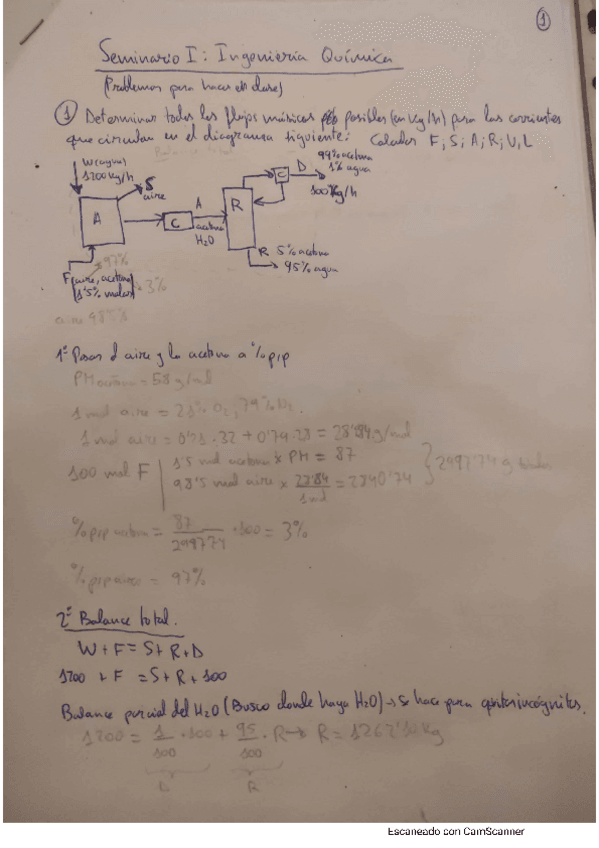 1
Seminario I: Ingeniería Química
(Problemas para hacer en clase)
① Determinar todos los flujos másicos posibles (en Kg/h) para las corrientes
que circulan en el diagrama siguiente: Calcular F; S; A; R; V; L
W(agua)
1200 Kg/h
S
aire
A
C
A
acetona
H2O
R
C
D
99% acetona
1% agua
100 Kg/h
R 5% acetona
95% agua
F(aire, acetona)
1'5% molar
97%
3%
aire 98'5%
1º Pasar el aire y la acetona a % p/p
PM acetona = 58 g/mol
1 mol aire = 21% O2, 79% N2.
1 mol aire = 0'21 · 32 + 0'79 · 28 = 28'84 g/mol
100 mol F
1'5 mol acetona x PM = 87
98'5 mol aire x 28'84 / 1 mol = 2840'74
2927'74 g
% p/p acetona = 87 / 2927'74 · 100 = 3%
% p/p aire = 97%
2º Balance total.
W + F = S + R + D
1200 + F = S + R + 100
Balance parcial del H2O (Busco donde haya H2O) → Se hace para quitar incógnitas.
1200 = 1/100 · 100 + 95/100 · R → R = 1262'10 Kg
D
R
Escaneado con CamScanner